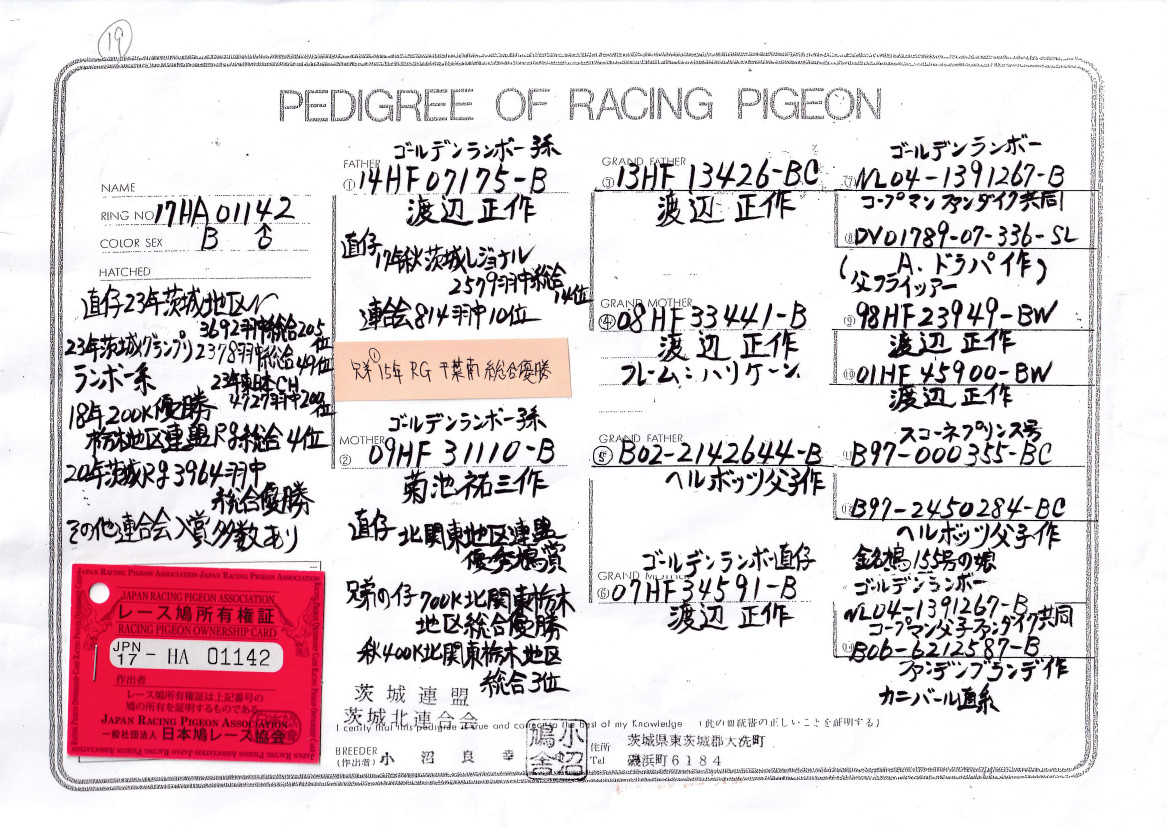 19
PEDIGREE OF RACING PIGEON
NAME
RING NO 17HA01142
COLOR SEX B ♂
HATCHED
直仔23年茨城地区N
3692羽中総合205位
23年茨城グランプリ2378羽中総合49位
ランボー系 23年東日本CH
4727羽中200位
18年200K優勝
栃木地区連盟Rg総合4位
20年茨城Rg3964羽中
総合優勝
その他連合会入賞多数あり
JAPAN RACING PIGEON ASSOCIATION
レース鳩所有権証
RACING PIGEON OWNERSHIP CARD
JPN
17 - HA 01142
作出者
レース鳩所有権証は上記番号の
鳩の所有を証明するものである
JAPAN RACING PIGEON ASSOCIATION
一般社団法人 日本鳩レース協会
ゴールデンランボー孫
FATHER
① 14HF07175-B
渡辺 正作
直仔 17年秋茨城レジョナル
2579羽中総合
14位
連合会814羽中10位
兄弟①15年 RG 千葉南総合優勝
ゴールデンランボー孫
MOTHER
② 09HF 31110-B
菊池祐三作
直仔 北関東地区連盟
優秀鳩賞
兄弟の仔 700K北関東栃木
地区総合優勝
秋400K北関東栃木地区
総合3位
茨城連盟
茨城北連合会
GRAND FATHER
③ 13HF 13426-BC
渡辺 正作
GRAND MOTHER
④ 08HF33441-B
渡辺 正作
フレーム:ハリケーン
GRAND FATHER
⑤ B02-2142644-B
ヘルボッツ父子作
ゴールデンランボー直仔
GRAND MOTHER
⑥ 07HF34591-B
渡辺 正作
ゴールデンランボー
⑦ NL04-1391267-B
コープマンファンダイク共同
⑧ DV01789-07-336-SL
(A.ドラパイ作)
父フライツアー
⑨ 98HF23949-BW
渡辺 正作
⑩ 01HF45900-BW
渡辺 正作
スコーネプリンス号
⑪ B97-000355-BC
⑫ B97-2450284-BC
ヘルボッツ父子作
銘鳩155号の娘
ゴールデンランボー
NL04-1391267-B
コープマン父子ファンダイク共同
⑭ B06-6212587-B
ファンデンブランデ作
カニバール直系
I certify that this pedigree is true and correct to the best of my Knowledge (此の血統書の正しいことを証明する)
BREEDER
(作出者) 小沼良幸
小沼鳩舎
住所 茨城県東茨城郡大洗町
Tel 磯浜町6184